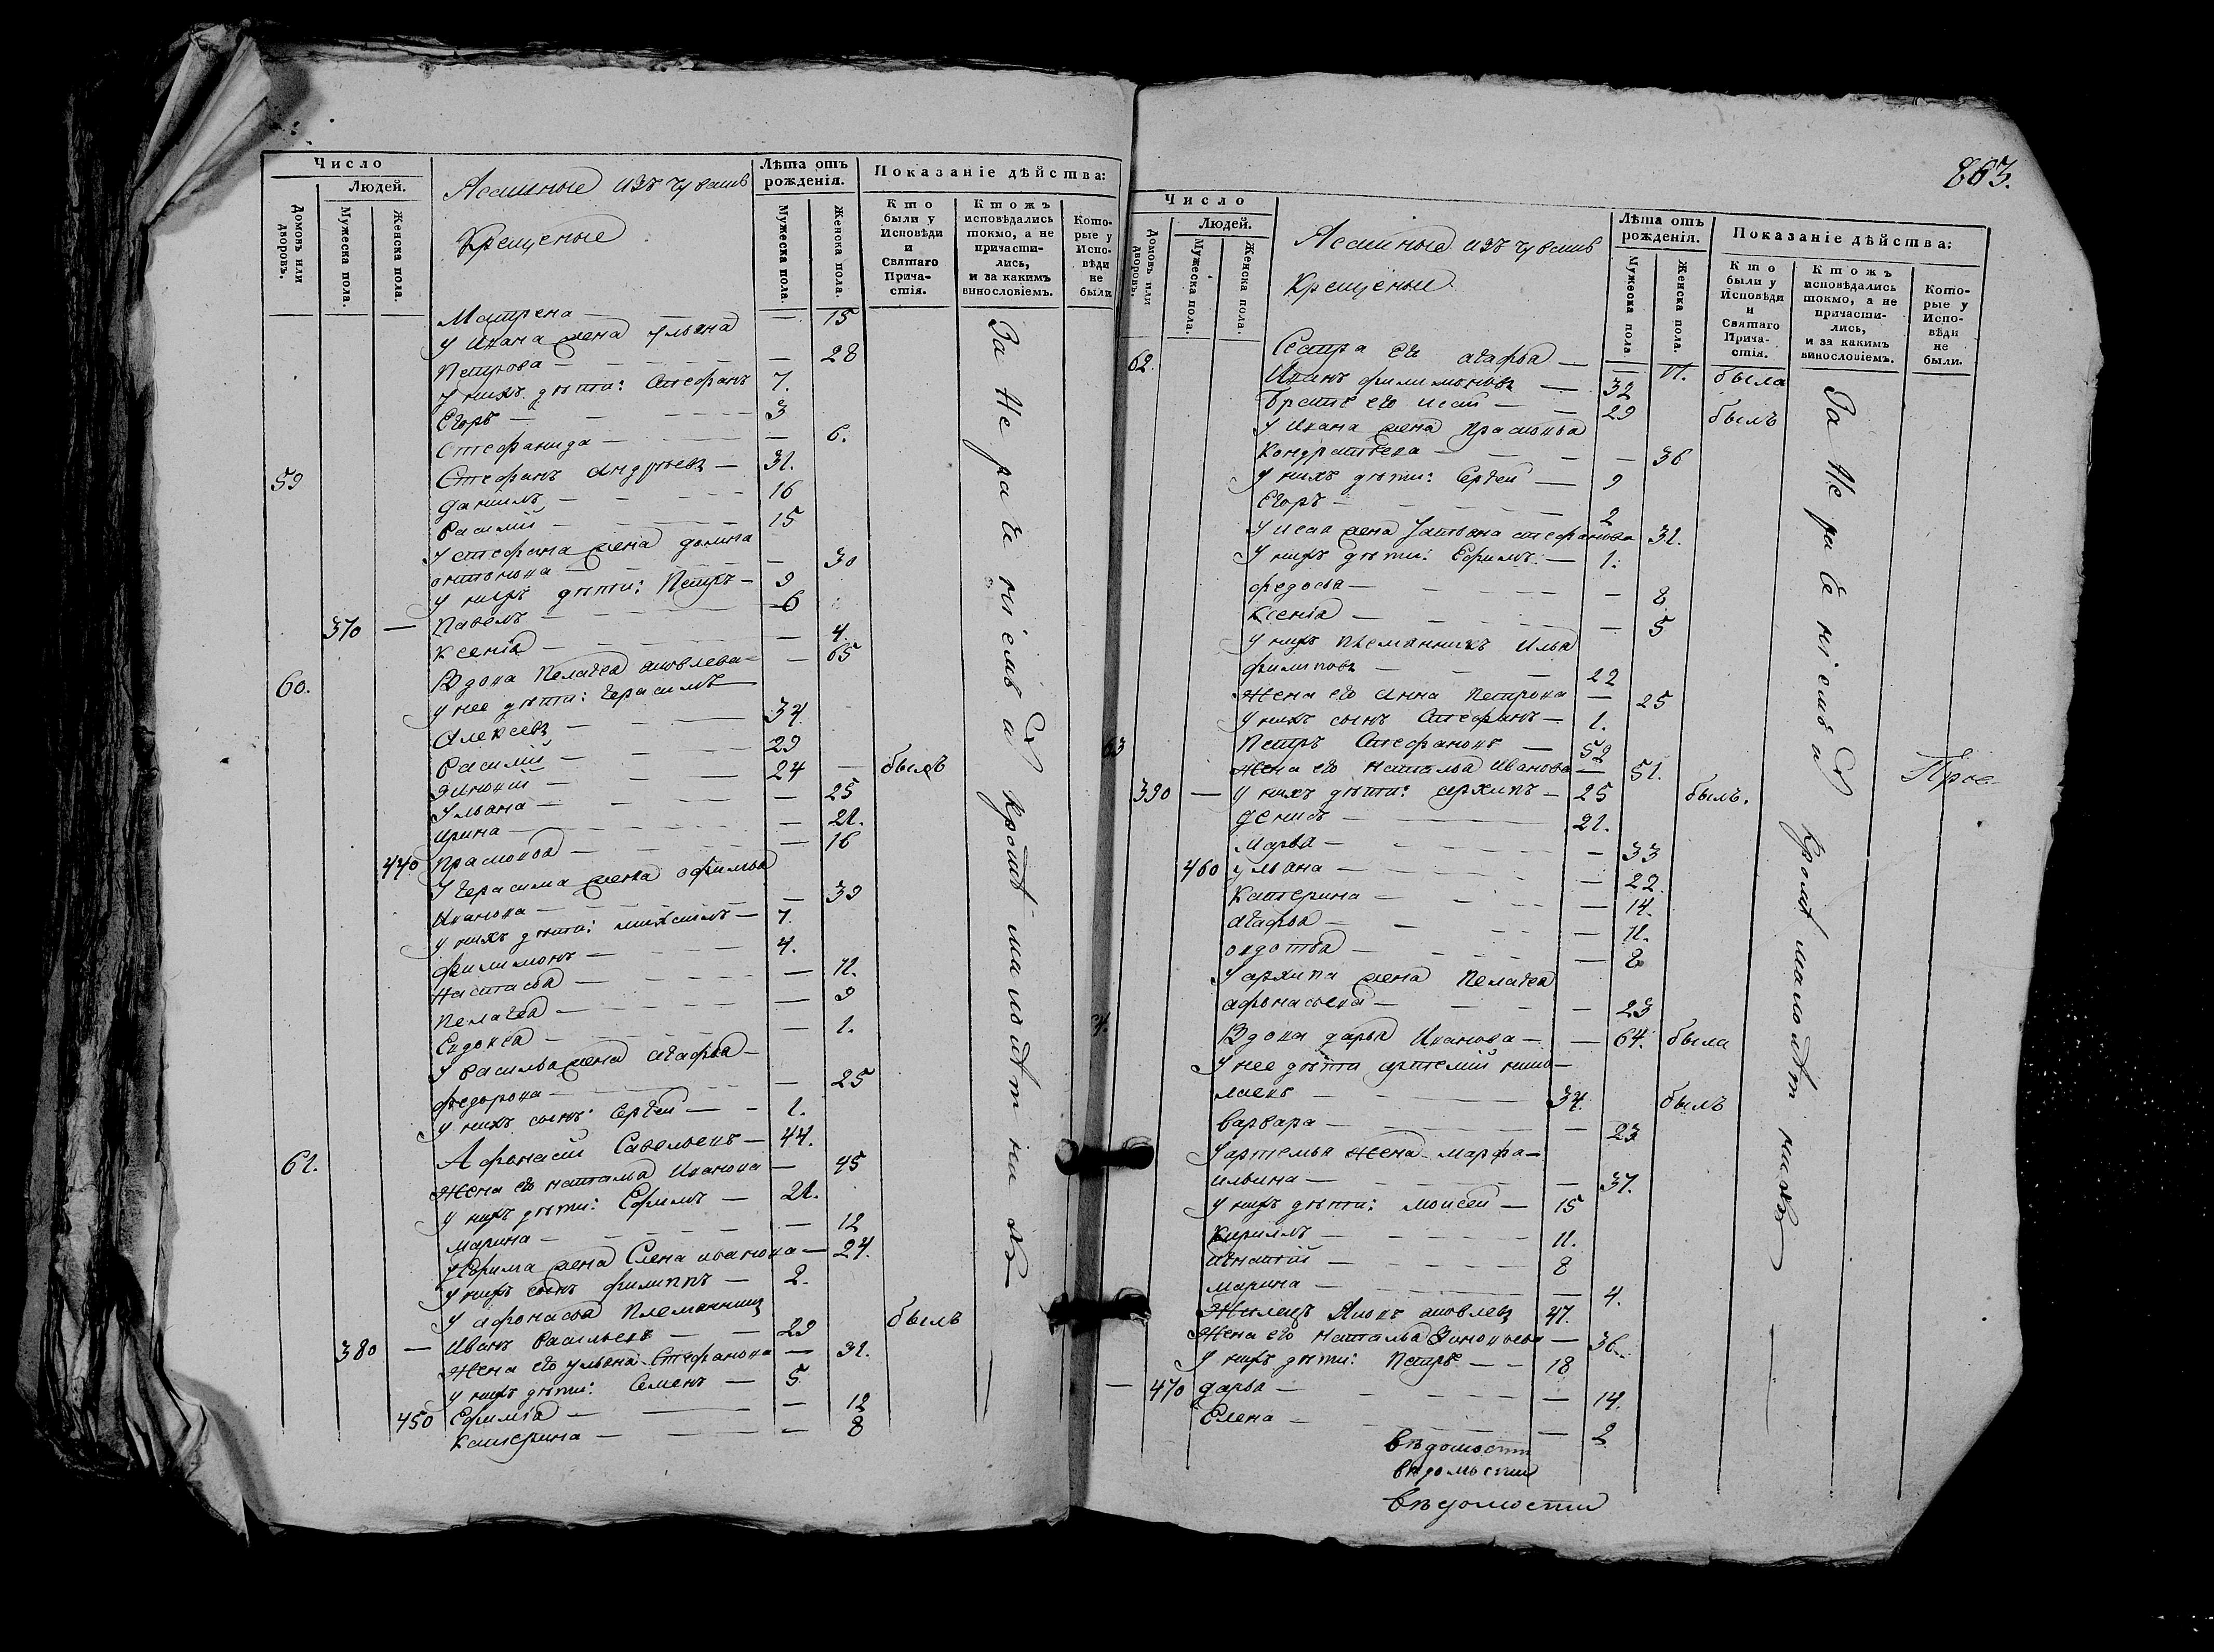 Число
Людей.
Домовъ или дворовъ.
Мужеска пола.
Женска пола.
Ясашные изъ чувашъ
Крещеные
Лѣта отъ рожденія.
Мужеска пола.
Женска пола.
Показаніе дѣйства:
Кто были у Исповѣди и Святаго Причастія.
Ктожъ исповѣдались токмо, а не причастились, и за какимъ винословіемъ.
Которые у Исповѣди не были
Матрена — — 15
У Ивана жена Ульяна
Петрова — — 28
У нихъ дѣти: Стефанъ 7.
Егоръ — 3
Стефанида — — 6.
59 Стефанъ Андреевъ — 31.
Данiилъ — 16
Василiй — 15
У Стефана жена
Антонова — — 30
У нихъ дѣти: Петръ — 9
370 — Павелъ — 6
Ксенiя — — 4.
60. Вдова Пелагея Яковлева — — 65
У нее дѣти: Герасимъ
Алексевъ — 34.
Василiй — 29
Зиновiй — 24 — былъ
Ульяна — — 25
Ирина — — 21.
440 Прасковья — — 16
У Герасима жена Офимья
Иванова — — 39
У нихъ дѣти: Михаилъ — 7.
Филимонъ — 4.
Настасья — — 11.
Пелагея — — 9
Евдокея — — 1.
У Василья жена Агафья —
Федорова — — 25
У нихъ сынъ Сергей — 1.
61. Афонасiй Савельевъ — 44.
Жена его Наталья Иванова — 45
У нихъ дѣти: Ефимъ — 21.
Марина — — 12
У Ефима жена Елена Иванова — 24.
У нихъ сынъ Филиппъ — 2.
У Афонасья племянникъ
380 — Иванъ Васильевъ — 29 былъ
Жена его Ульяна Стефанова — 31.
У нихъ дѣти: Семенъ — 5
450 Ефимiя — — 12
Катерина — — 8
За нераченiемъ и кромѣ малолѣтнихъ
863.
Число
Людей.
Домовъ или дворовъ.
Мужеска пола.
Женска пола.
Ясашные изъ чувашъ
Крещеные
Лѣта отъ рожденія.
Мужеска пола
Женска пола.
Показаніе дѣйства:
Кто были у Исповѣди и Святаго Причастія.
Ктожъ исповѣдались токмо, а не причастились, и за какимъ винословіемъ.
Которые у Исповѣди не были.
Сестра ея Агафья — — 11. была
62. Иванъ Филимоновъ — 32
Братъ его Исай — 29 былъ
У Ивана жена Прасковья
Кондратьева — — 36
У нихъ дѣти: Сергей — 9
Егоръ — 2
У Исая жена Татьяна Стефанова 31.
У нихъ дѣти: Ефимъ — 1.
Федосья — — 8
Ксенiя — — 5
У нихъ племянникъ Илья
Филиповъ — 22
Жена его Анна Петрова — 25
У нихъ сынъ Стефанъ — 1.
63 Петръ Стефановъ — 52
Жена его Наталья Иванова — 51.
390 — У нихъ дѣти: Архипъ — 25 былъ.
Денисъ — 21.
Марья — — 33
460 Ульяна — — 22
Катерина — — 14.
Агафья — — 11.
Овдотья — — 8
У Архипа жена Пелагея
Афонасьева — — 23
Вдова Дарья Иванова — — 64. была
У нее дѣти Артемiй Нико-
лаевъ — 34. былъ
Варвара — — 23
У Артемья жена Марфа —
Ильина — — 37.
У нихъ дѣти: Моисей — 15
Кириллъ — 11.
Игнатiй — 8
Марина — — 4.
Жилецъ Яковъ Яковлевъ 47.
Жена его Наталья Зиновьева — 36.
У нихъ дѣти: Петръ — 18
470 Дарья — — 14.
Елена — — 2
За нераченiемъ и кромѣ малолѣтнихъ
Прое-
вѣдомости
вѣдомости
вѣдомости